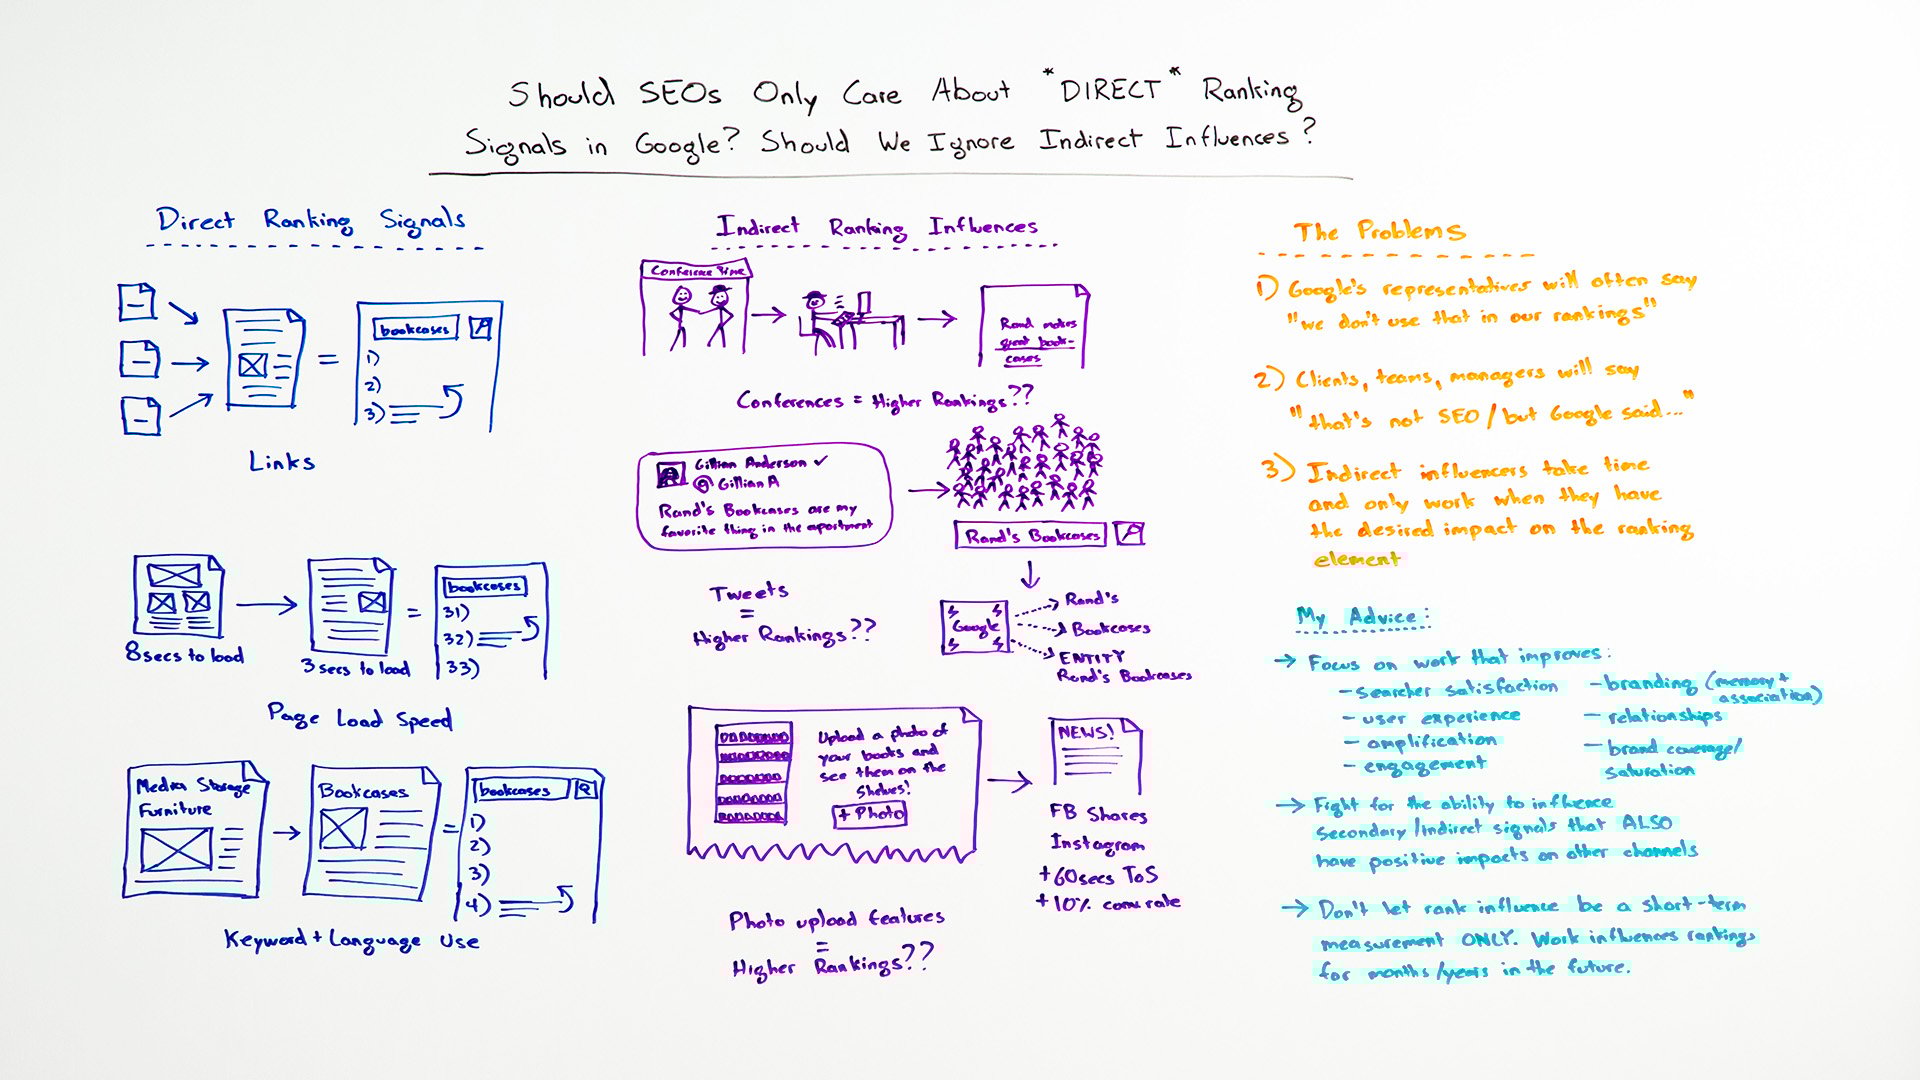 Should SEOs Only Care About *DIRECT* Ranking
Signals in Google? Should We Ignore Indirect Influences?
Direct Ranking Signals
bookcases
1)
2)
3)
Links
8 secs to load
3 secs to load
bookcases
31)
32)
33)
Page Load Speed
Media Storage
Furniture
Bookcases
bookcases
1)
2)
3)
4)
Keyword + Language Use
Indirect Ranking Influences
Conference Time
Rand makes
great book-
cases
Conferences = Higher Rankings??
Gillian Anderson ✓
@GillianA
Rand's Bookcases are my
favorite thing in the apartment
Rand's Bookcases
Tweets
=
Higher Rankings??
Google
Rand's
Bookcases
ENTITY
Rand's Bookcases
Upload a photo of
your books and
see them on the
Shelves!
+ Photo
NEWS!
FB Shares
Instagram
+60secs ToS
+10% conv. rate
Photo upload features
=
Higher Rankings??
The Problems
1) Google's representatives will often say
"we don't use that in our rankings"
2) Clients, teams, managers will say
"that's not SEO/but Google said..."
3) Indirect influencers take time
and only work when they have
the desired impact on the ranking
element
My Advice:
→ Focus on work that improves:
- searcher satisfaction
- user experience
- amplification
- engagement
- branding (memory +
association)
- relationships
- brand coverage/
saturation
→ Fight for the ability to influence
Secondary/indirect signals that ALSO
have positive impacts on other channels
→ Don't let rank influence be a short-term
measurement ONLY. Work influences rankings
for months/years in the future.